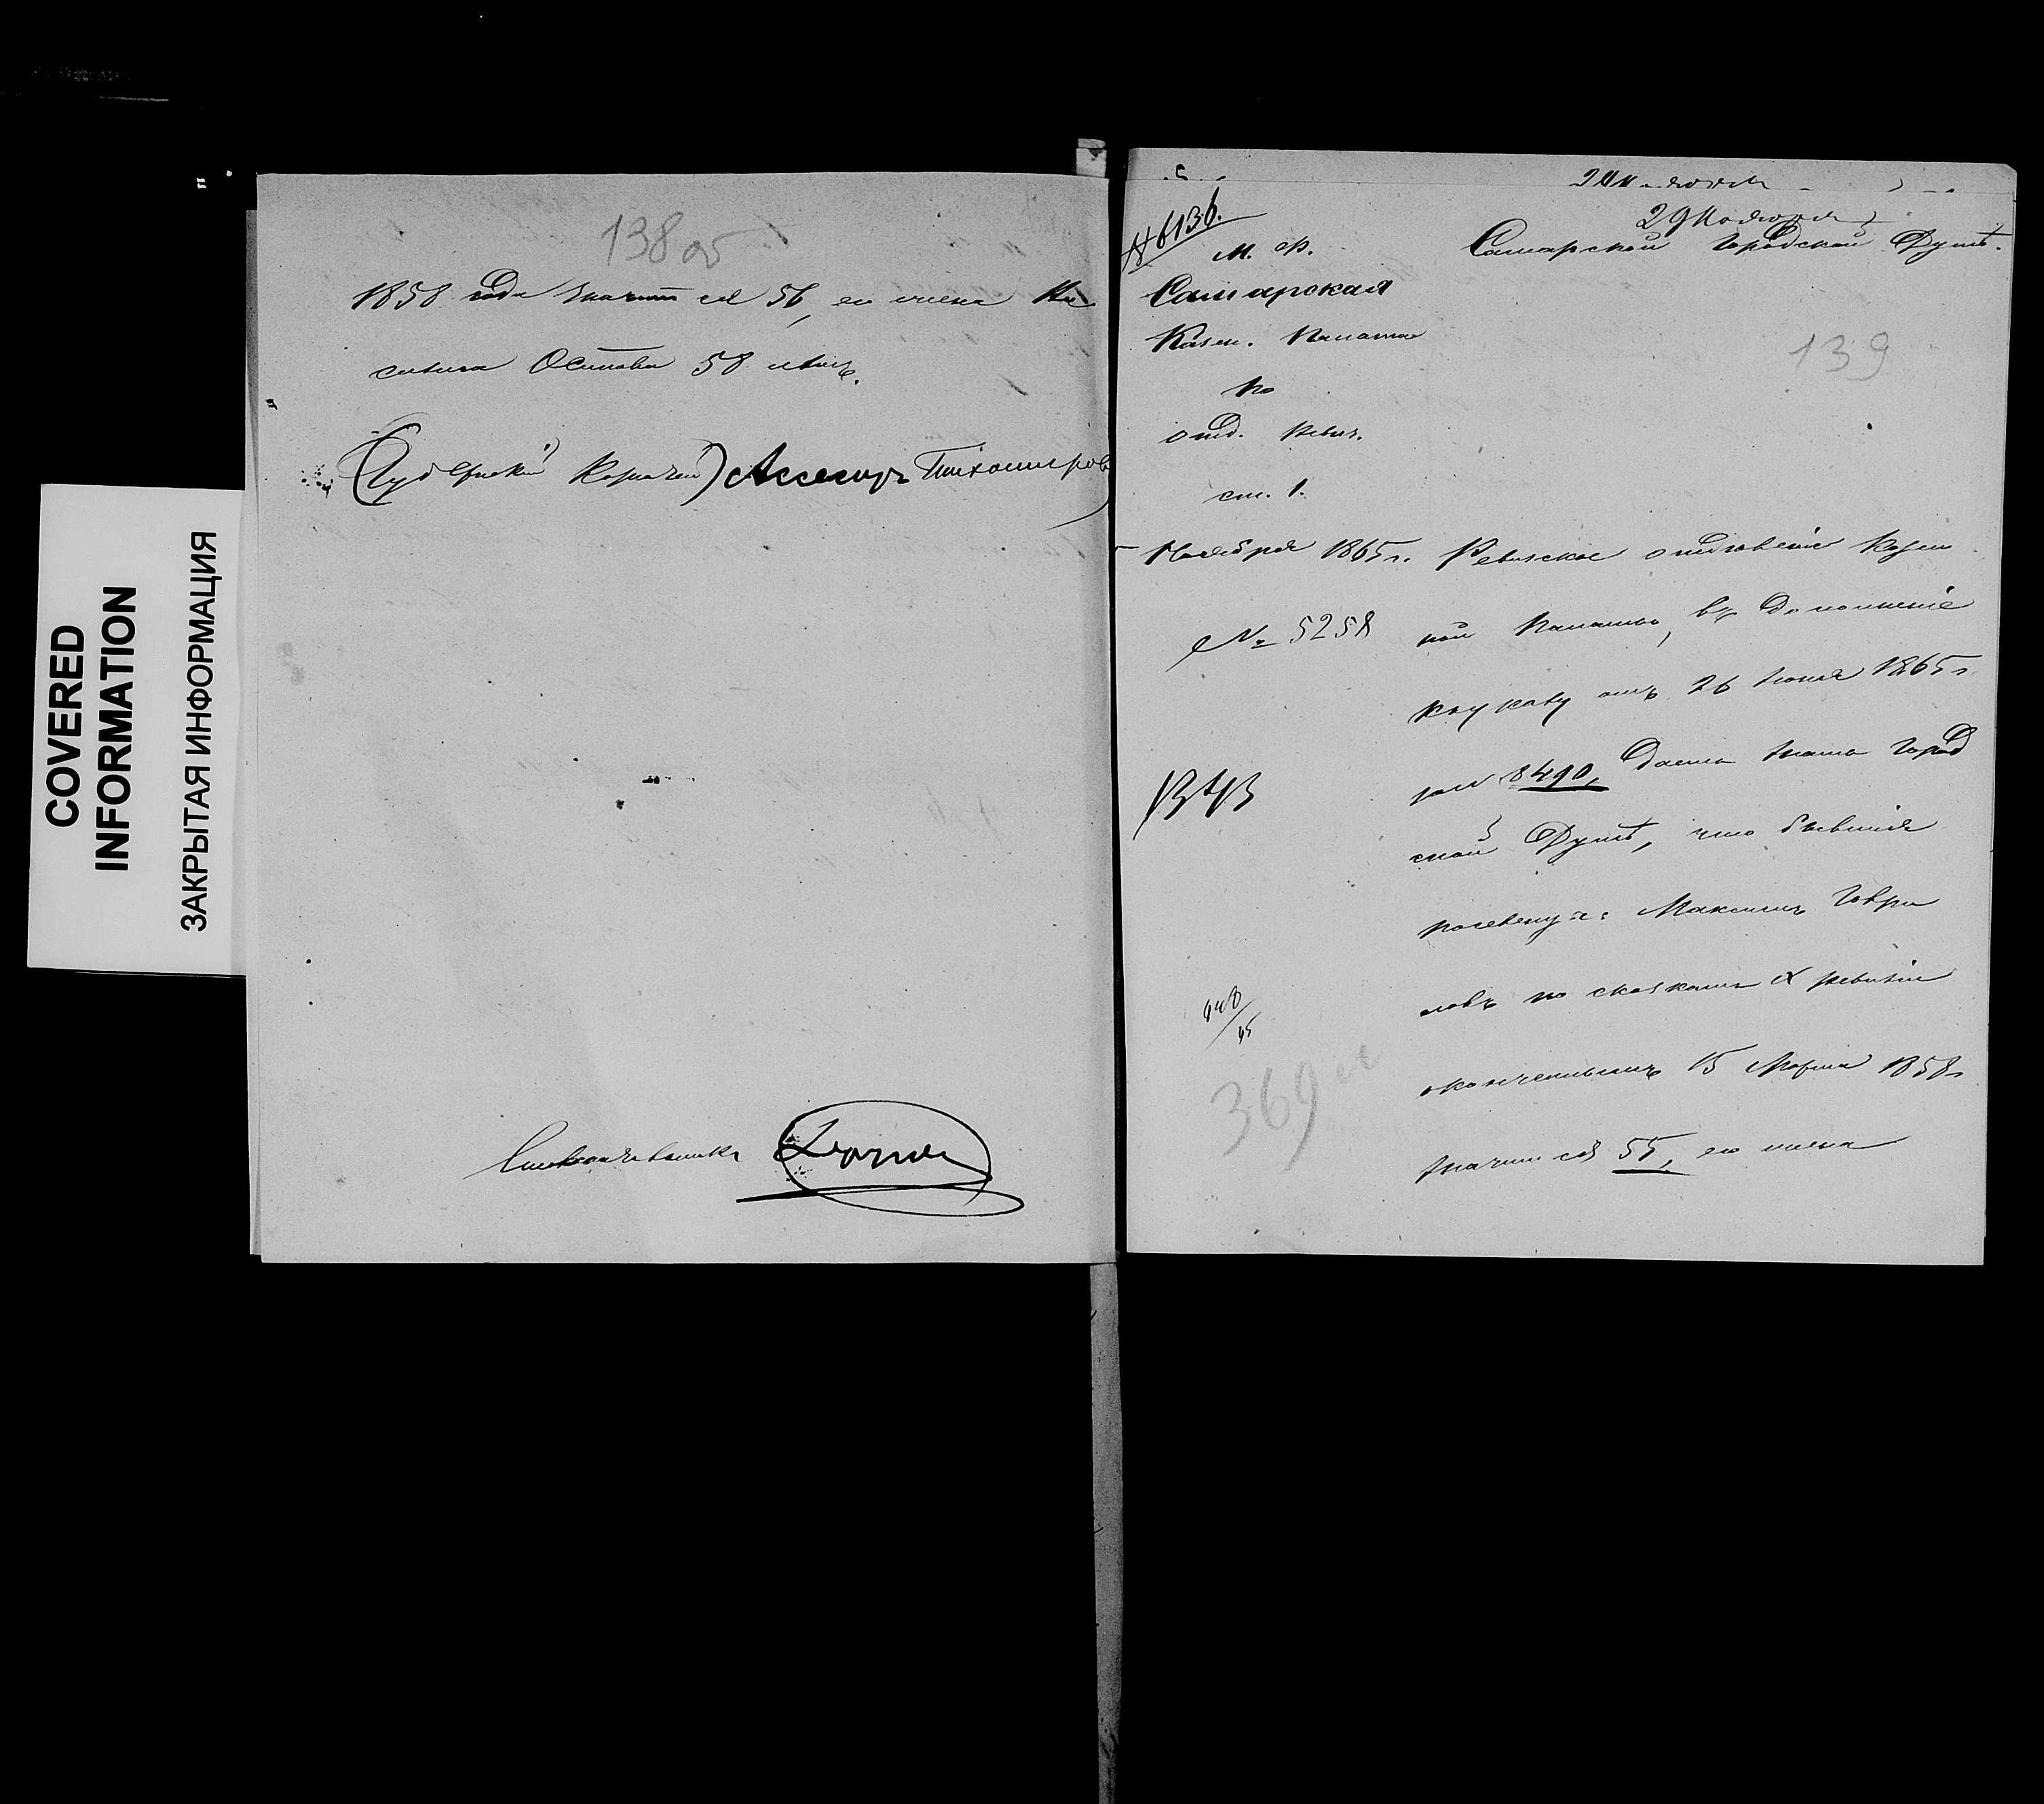 COVERED
INFORMATION
ЗАКРЫТАЯ ИНФОРМАЦИЯ
138 об
1858 года значится 56, его жена
Осипова 58 лѣтъ.
Ассесоръ Тихомировъ
139
29 Ноября
№ 6136.
М. Ф.
Самарской Городской Думѣ.
Самарская
Казен. Палата
по
отд. Ревиз.
ст. 1.
Ноября 1865 г.
№ 5258
Ревизское отдѣленіе Казен
ной Палаты, въ дополненіе
къ указу отъ 26 1865 г
за № 8490, даетъ знать Город
ской Думѣ, что
Максимъ Гаври
ловъ по сказкамъ X ревизіи
оконченнымъ 15 Марта 1858 г
значится 55, его жена
369